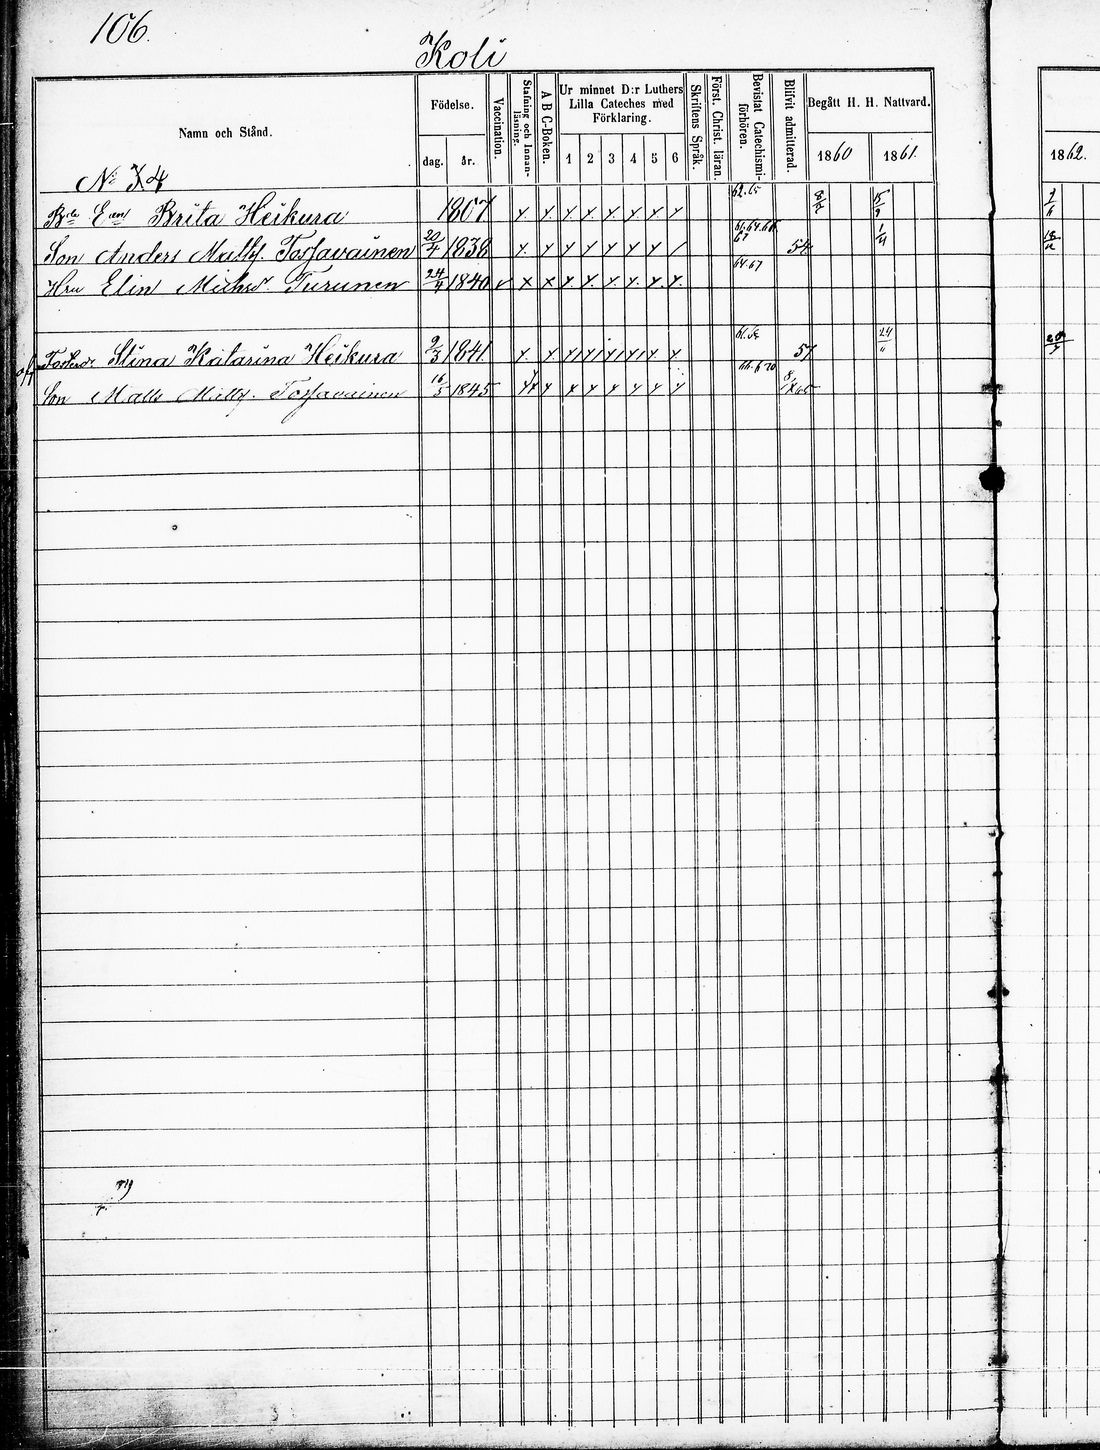 106.
Koli
Namn och Stånd.
Födelse.
dag. år.
Vaccination.
Stafning och Innan-läsning.
A B C-Boken.
Ur minnet D:r Luthers Lilla Cateches med Förklaring.
1 2 3 4 5 6
Skriftens Språk.
Först. Christ. läran.
Bevistat Catechismi-förhören.
Blifvit admitterad.
Begått H. H. Nattvard.
1860 1861. 1862.
No 4
Brita Heikura 1807 x x x x x x x x 62.65
Son Anders Matts. Tossavainen 20/4 1838 x x x x x x x 54
Hru Elin Michsdr. Turunen 24/4 1840 v x x x x x x x x 64.67
Stina Katarina Heikura 9/3 1841. x x x x x x x x 57 24/11
Son Matts Matts. Tossavainen 16/5 1845 x x x x x x x